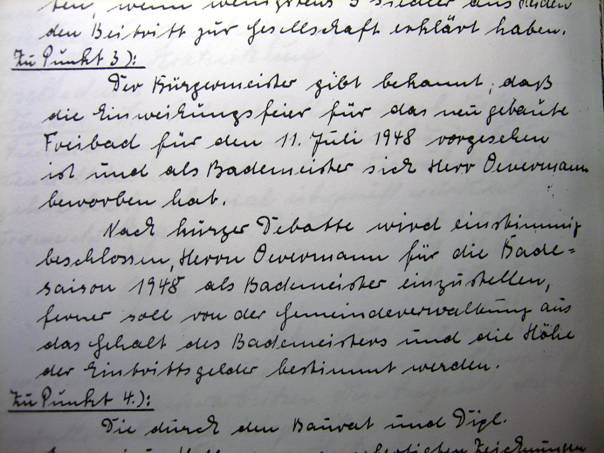 ten, wenn wenigstens 5 Siedler aus Heiden
den Beitritt zur Gesellschaft erklärt haben.
Zu Punkt 3):
Der Bürgermeister gibt bekannt, daß
die Einweihungsfeier für das neugebaute
Freibad für den 11. Juli 1948 vorgesehen
ist und als Bademeister sich Herr Oevermann
beworben hat.
Nach kurzer Debatte wird einstimmig
beschlossen, Herrn Oevermann für die Bade=
saison 1948 als Bademeister einzustellen,
ferner soll von der Gemeindeverwaltung aus
das Gehalt des Bademeisters und die Höhe
der Eintrittsgelder bestimmt werden.
Zu Punkt 4.):
Die durch den Baurat und Dipl.
Zeichnungen